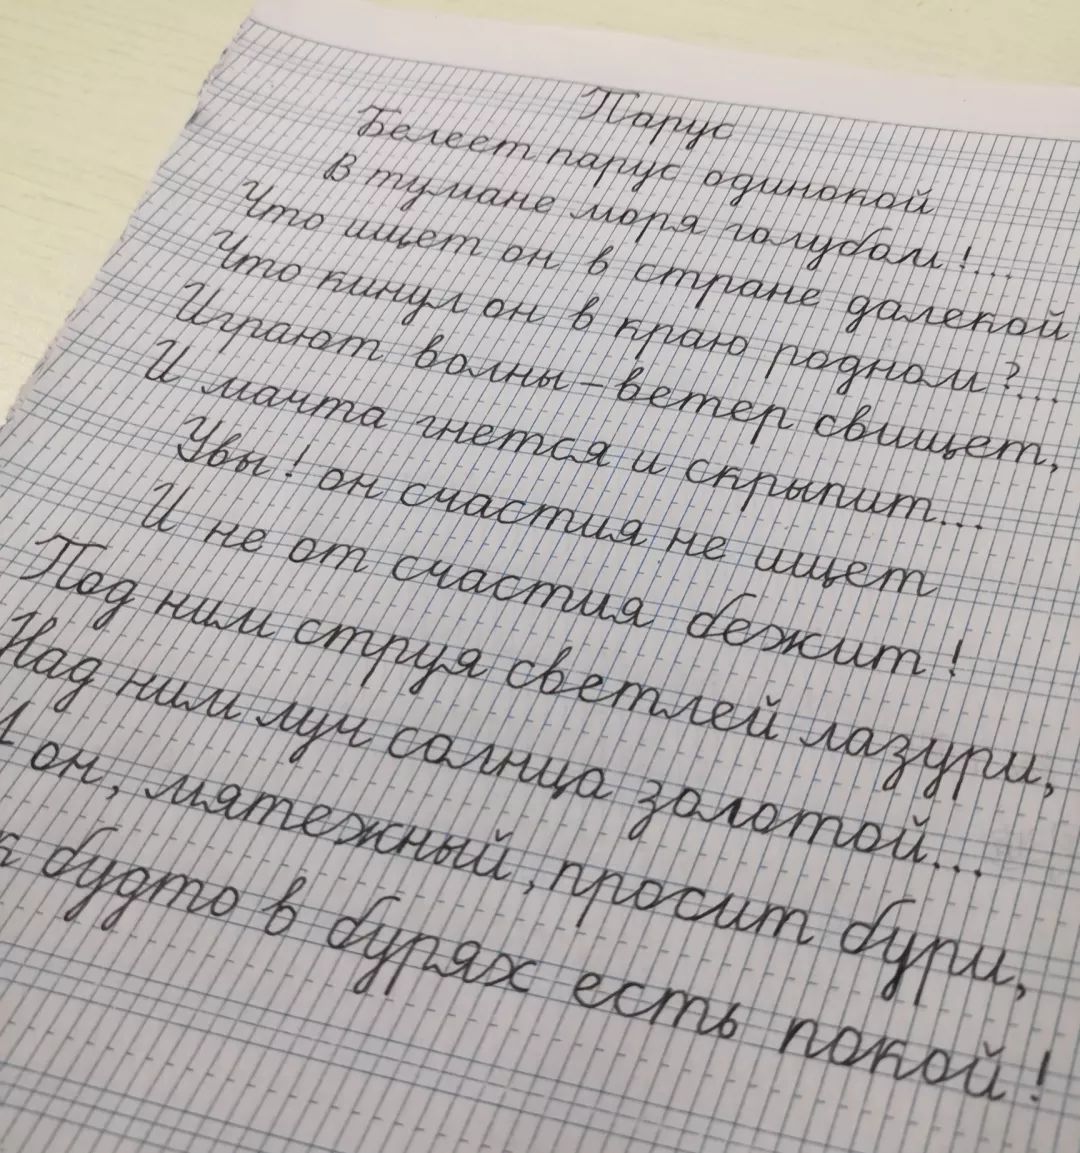 Парус
Белеет парус одинокой
В тумане моря голубом!...
Что ищет он в стране далекой
Что кинул он в краю родном?...
Играют волны – ветер свищет,
И мачта гнется и скрыпит...
Увы! он счастия не ищет
И не от счастия бежит!
Под ним струя светлей лазури,
Над ним луч солнца золотой...
А он, мятежный, просит бури,
будто в бурях есть покой!